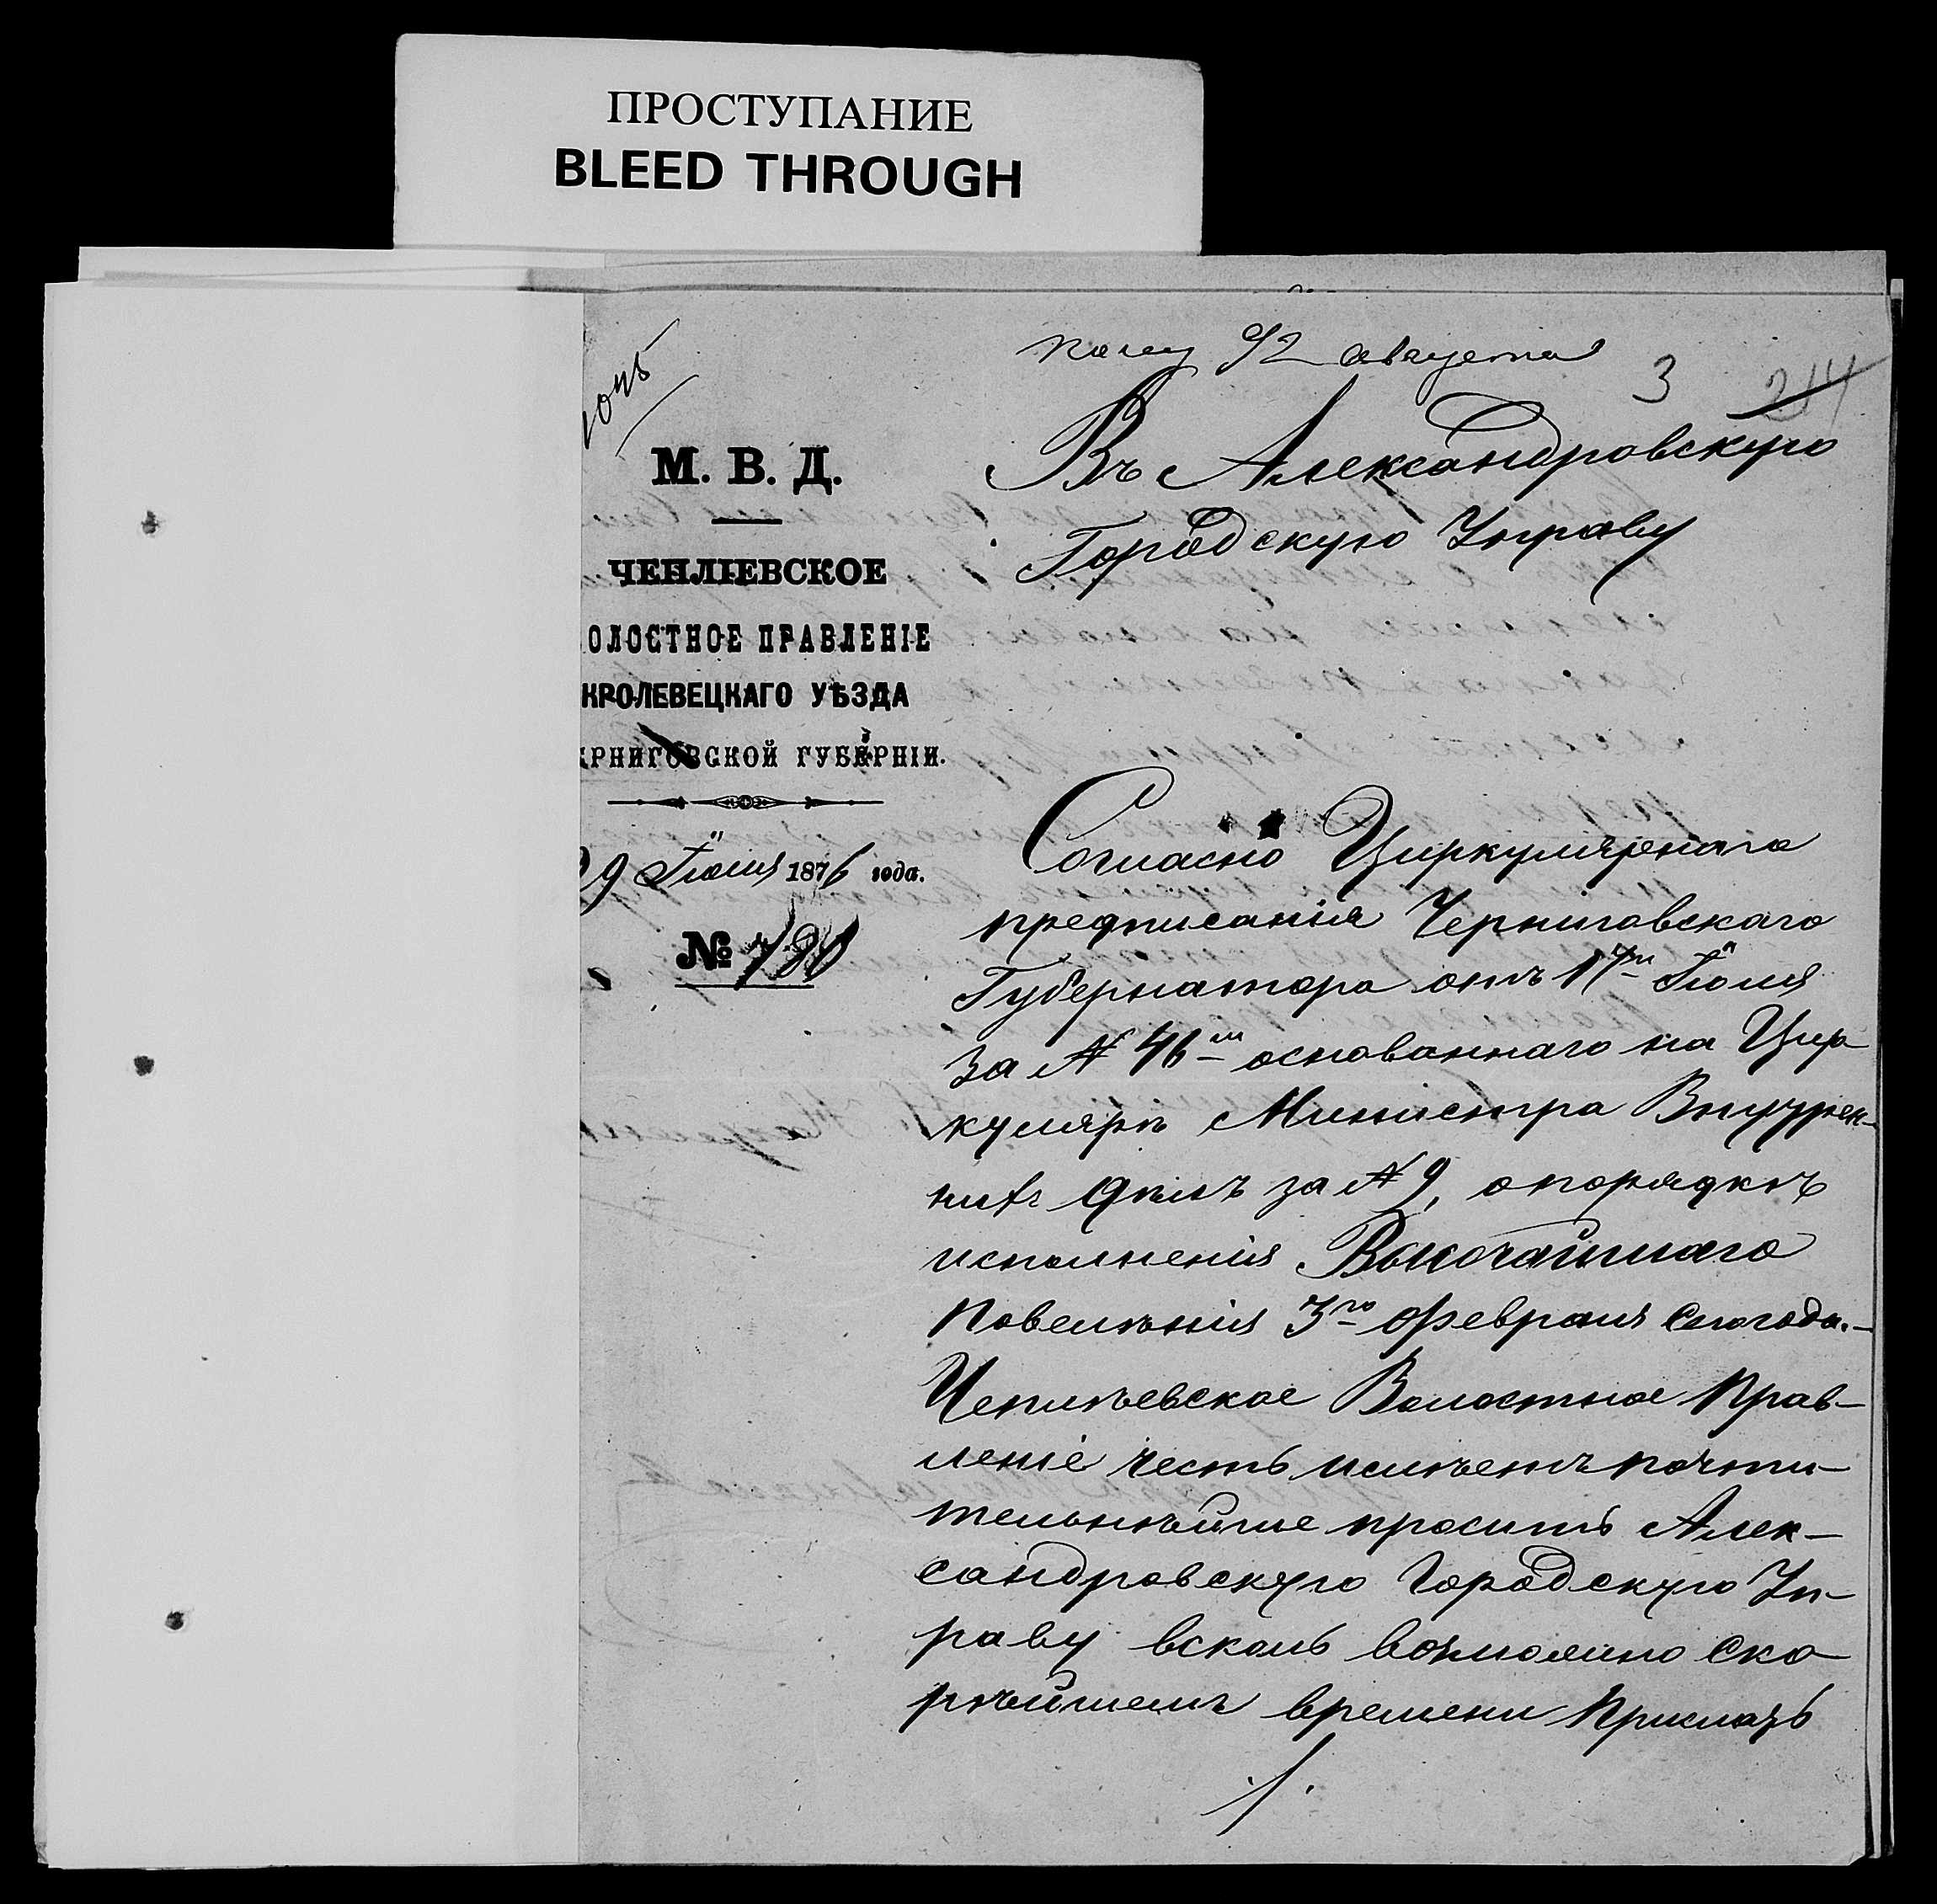 ПРОСТУПАНИЕ
BLEED THROUGH
1045
полу 9/2 августа
3 214
М. В. Д.
ЧЕПЛІЕВСКОЕ
ОЛОСТНОЕ ПРАВЛЕНІЕ
КРОЛЕВЕЦКАГО УѢЗДА
РНИГОВСКОЙ ГУБЕРНІИ.
29 Іюля 1876 года.
№ 780
Въ Александровскую
Городскую Управу
Согласно Циркулярнаго
предписанія Черниговскаго
Губернатора отъ 17го Іюля
за № 46м основаннаго на Цир
куляръ Министра Внутрен-
нихъ Дѣлъ за № 9, о порядкѣ
исполненія Высочайшаго
Повелѣнія 3го Февраля сего года.-
Чеплѣевское Волостное Прав-
леніе честь имѣетъ почти-
тельнѣйше просить Алек-
сандровскую Городскую Уп-
раву всколь возможно ско
рѣйшемъ времени прислать